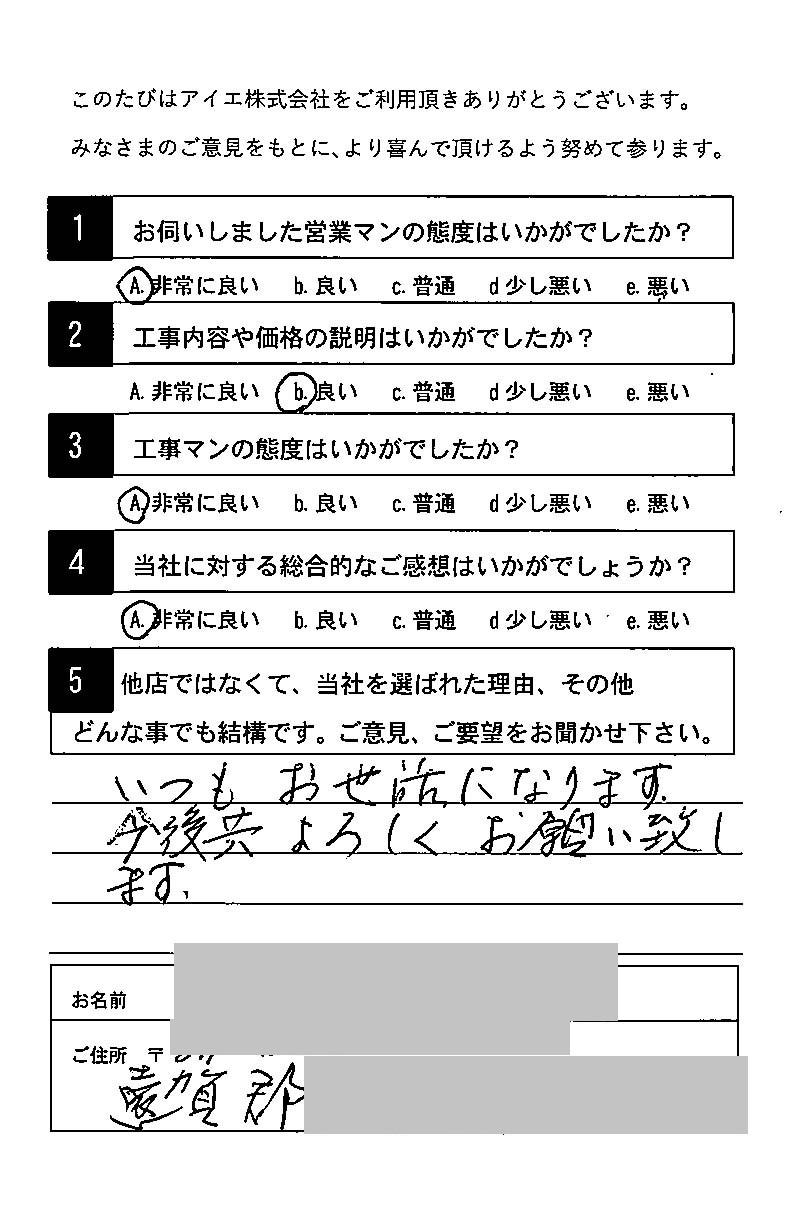 このたびはアイエ株式会社をご利用頂きありがとうございます。
みなさまのご意見をもとに、より喜んで頂けるよう努めて参ります。
1 お伺いしました営業マンの態度はいかがでしたか？
A. 非常に良い b. 良い c. 普通 d 少し悪い e. 悪い
2 工事内容や価格の説明はいかがでしたか？
A. 非常に良い b. 良い c. 普通 d 少し悪い e. 悪い
3 工事マンの態度はいかがでしたか？
A. 非常に良い b. 良い c. 普通 d 少し悪い e. 悪い
4 当社に対する総合的なご感想はいかがでしょうか？
A. 非常に良い b. 良い c. 普通 d 少し悪い e. 悪い
5 他店ではなくて、当社を選ばれた理由、その他
どんな事でも結構です。ご意見、ご要望をお聞かせ下さい。
いつも お世話になります.
今後共 よろしく お願い致し
ます.
お名前
ご住所 〒
遠賀郡